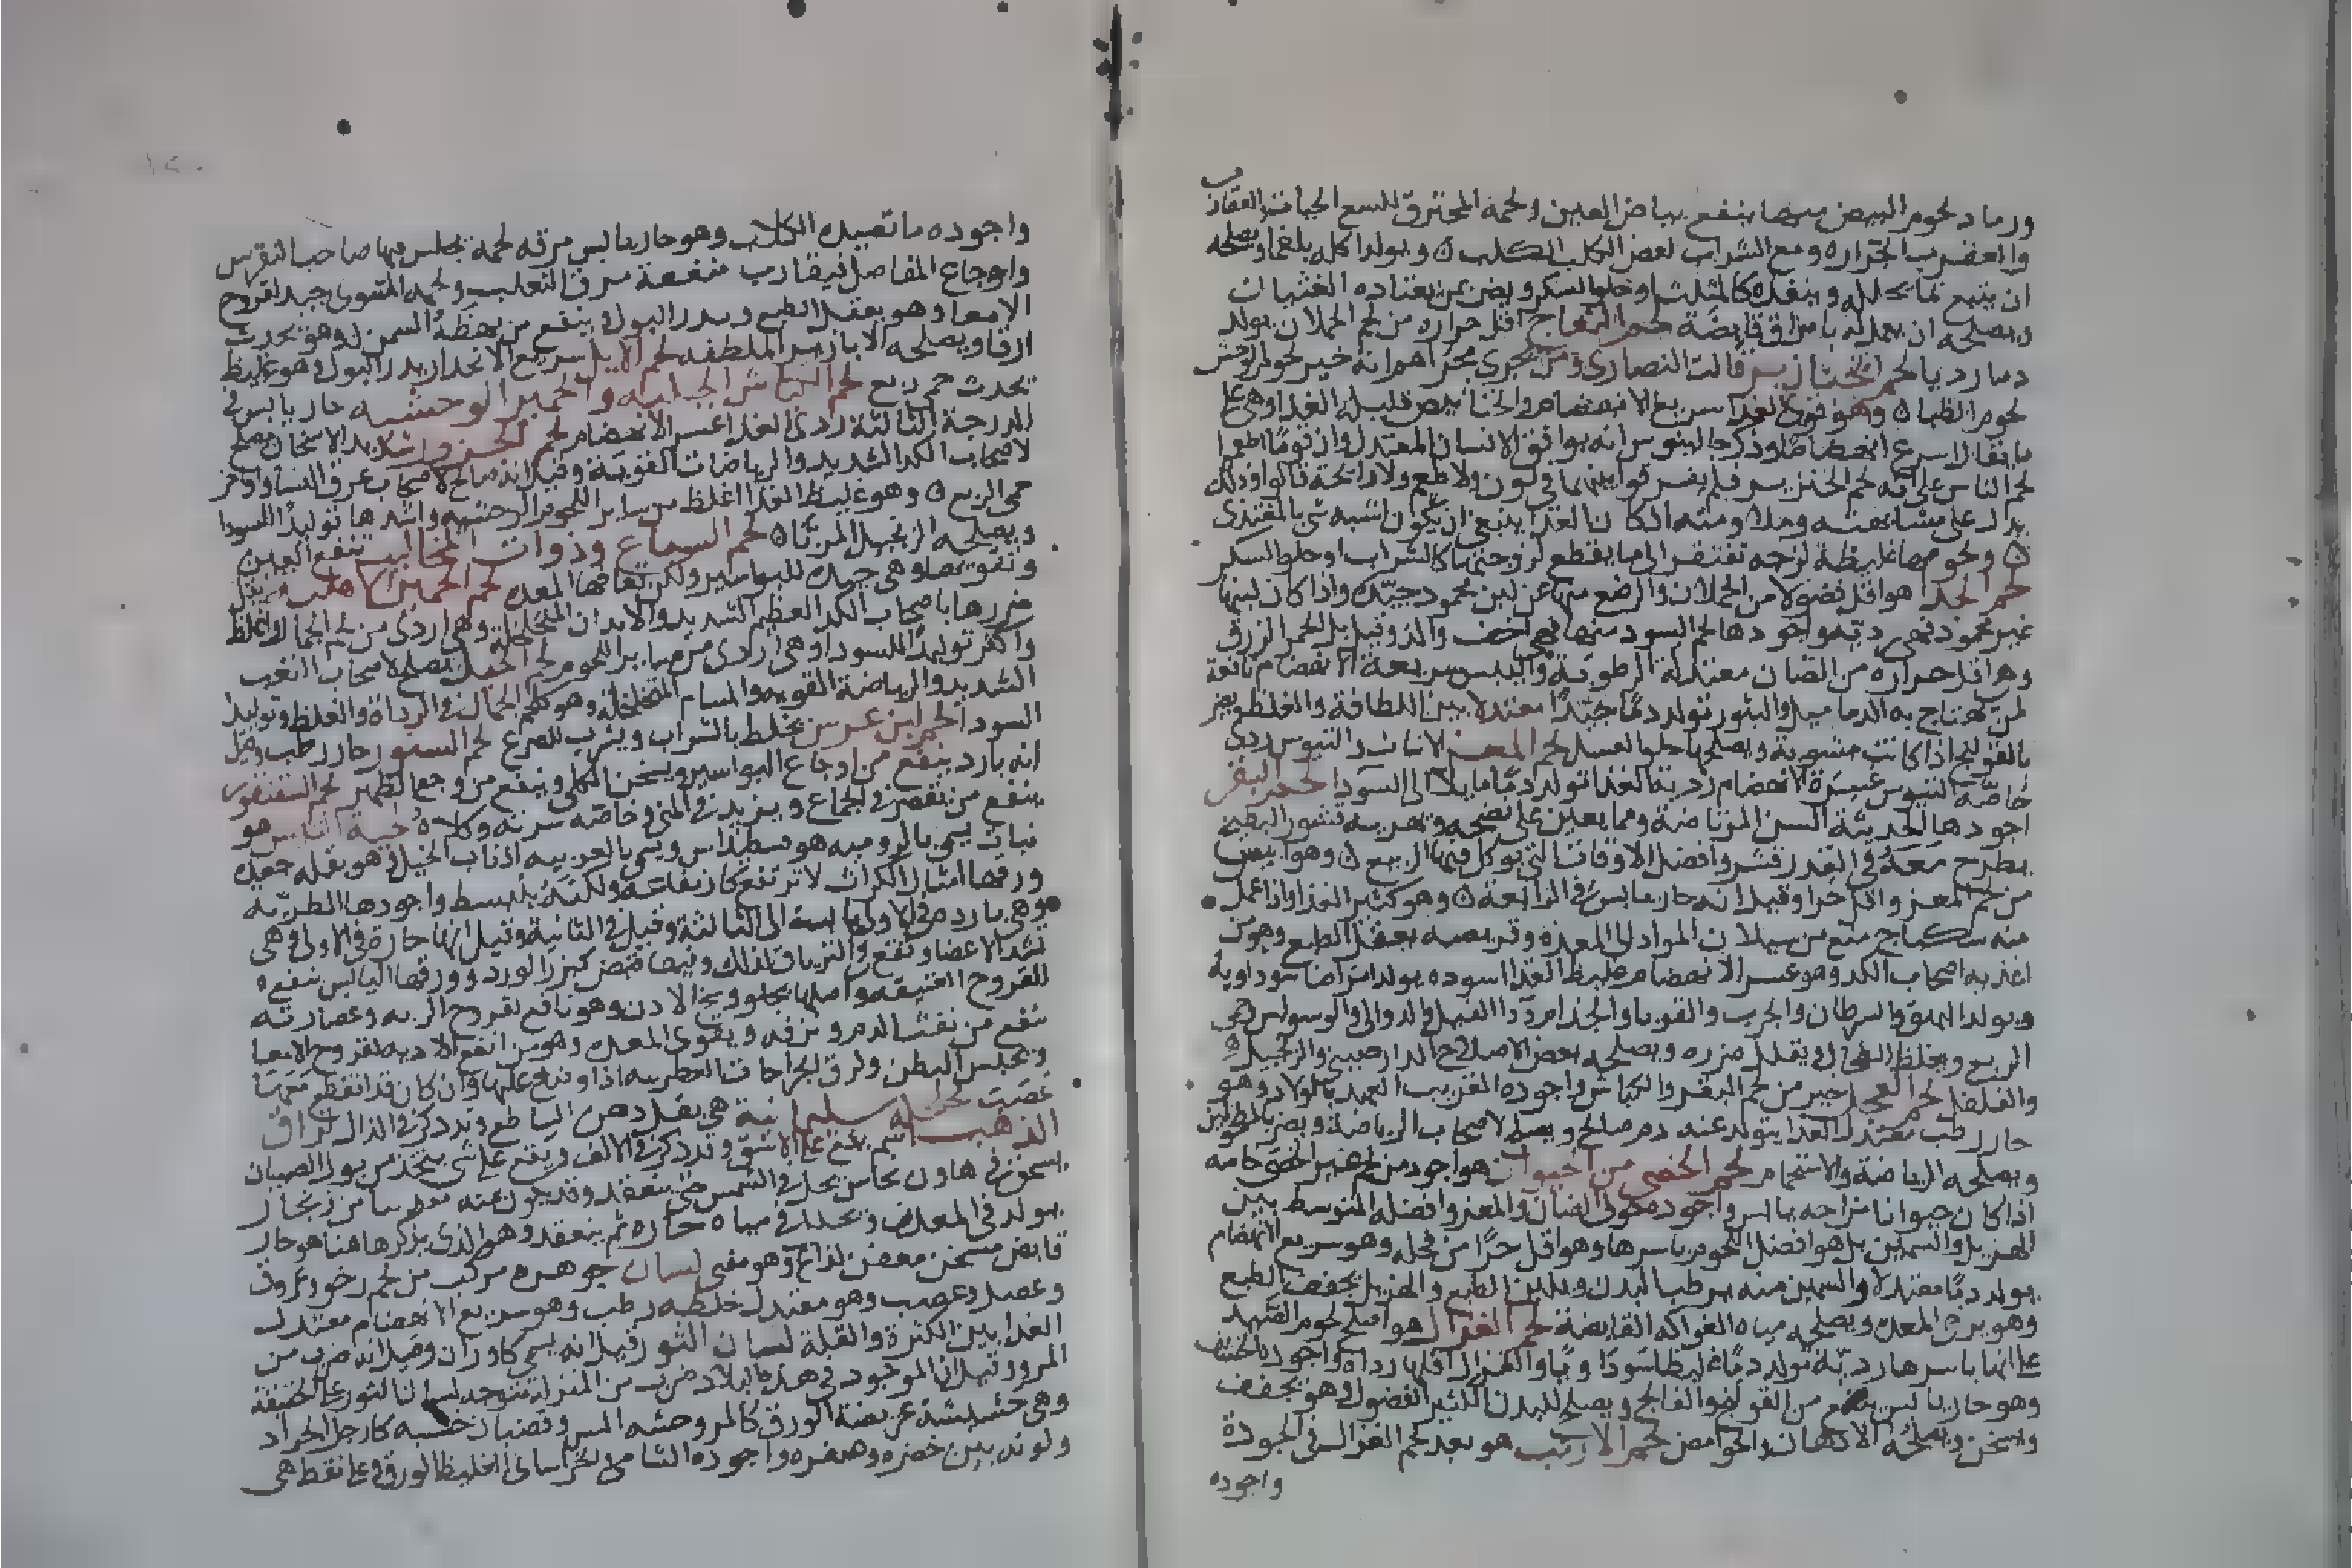 ورماد لحوم البيض منها ينفع بياض العين ولحمه المحترق للسع الحيات والعقارب
والعقرب الجرارة ومع الشراب لعض الكلب الكلب ه ويولد اكله بلغما ويصلحه
ان يتبع بما يحلله وينفذه كالمثلث او خل السكر ويضر بمن يعتاده الغثيان
ويصلحه ان يعمل له بامراق قابضة لحم النعاج اقل حرارة من لحم الحملان يولد
دما رديا لحم الخنازير قالت النصارى ومن يجري مجراهم انه خير لحوم الوحش
لحوم الظباء وهو قوي الغذا سريع الانهضام والخنانيص قليلة الغذا وهي على
ما يقال اسرع انهضاما وذكر جالينوس انه يوافق الانسان المعتدل وان قوما اطعموا
لحم الناس على انه لحم الخنزير فلم يفرقوا بينهما في لون ولا طعم ولا رايحة قالوا وذلك
يدل على مشابهته وملاومته اذ كان الغذا ينبغي ان يكون اشبه شي بالمغتذى
ه ولحومها غليظة لزجه تفتقر الى ما يقطع لزوجتها كالشراب او خل السكر
لحم الجدا هو اقل فضولا من الحملان والرضع منها عن لبن محمود جيده واذا كان لبنها
غير محمود فهي ردية واجودها لحم السود منها فهي اخف والذ وقيل بل الحمر الزرق
وهي اقل حرارة من الضان معتدلة الرطوبة واليبس سريعة الانهضام نافعة
لمن تهتاج به الدماميل والبثور تولد دما جيدا معتدلا بين اللطافة والغلظ ويضر
بالقولنج اذا كانت مشوية ويصلحها حلو العسل لحم المعز الاناث والتيوس ردي
خاصة التيوس عسرة الانهضام ردية الغذا تولد دما مايلا الى السودا لحم البقر
اجودها الحديثة السن المرتاضة ومما يعين على نضجه وتهريه قشور البطيخ
يطرح معه في القدر قشر وافضل الاوقات التي يوكل فيها الربيع ه وهو ايبس
من لحم المعز واقل حرا وقيل انه حار يابس في الرابعة ه وهو كثير الغذا واذا عمل
منه سكباج منع من سيلان المواد الى المعده وقريصه يعقل الطبع وهو من
اغذيه اصحاب الكد وهو عسر الانهضام غليظ الغذا اسوده يولد امراضا سوداوية
ويولد البهق والسرطان والجرب والقوبا والجذام ودا الفيل والدوالي والوسواس وحمى
الربع ويغلظ الطحال ويقلل ضرره ويصلحه بعض الاصلاح الدارصيني والزنجبيل
والفلفل لحم العجل خير من لحم البقر والكباش واجوده القريب العهد بالولاد وهو
حار رطب معتدل الغذا يتولد عنه دم صالح ويصلح لاصحاب الرياضة ويضر
ويصلحه الرياضة والاستحمام لحم الخصى من الحيوان هو اجود من لحم غير الخصى خاصه
اذا كان حيوانا مزاجه يابس واجوده حولى الضان والمعز وافضله المتوسط بين
الهزيل والسمين بل هو افضل اللحوم باسرها وهو اقل حرا من فحله وهو سريع الانهضام
يولد دما معتدلا والسمين منه يرطب البدن ويلين الطبع والهزيل يجفف الطبع
وهو يرخي المعده ويصلحه مياه الفواكه القابضة لحم الغزال هو اصلح لحوم الصيد
على انها باسرها ردية تولد دما غليظا سوداويا والغزال اقلها رداة واجوده الخشف
وهو حار يابس ينفع من القولنج والفالج ويصلح للبدن الكثير الفضول وهو يجفف
ويسخن ويصلحه الادهان والحوامض لحم الارنب هو بعد لحم الغزال في الجودة
واجوده
واجوده ما تصيده الكلاب وهو حار يابس مرقه لحمه يجلس فيها صاحب النقرس
واوجاع المفاصل فيقارب منفعة مرق الثعلب ولحمه المشوى جيد لقروح
الامعا وهو يعقل الطبع ويدر البول وينفع من بهظة السمن ه وهو يحدث
ارقا ويصلحه الابازير الملطفه لحم الايل سريع الانحدار يدر البول وهو غليظ
يحدث حمى ربع لحم الكباش الجبليه والحمير الوحشيه حار يابس في
الدرجة الثالثة ردى الغذا عسر الانهضام لحم الجزور شديد الاسخان يصلح
لاصحاب الكد الشديد والرياضات القوية وقيل انه صالح لاصحاب عرق النسا واواخر
حمى الربع ه وهو غليظ الغذا اغلظ من ساير اللحوم الوحشيه واشدها توليدا للسودا
ويصلحه الزنجبيل المربا ه لحم السباع وذوات المخاليب تنفع العين
وتقويها وهي جيده للبواسير ولكن تعافها المعده لحم الحمير الاهليه يقل
ضررها باصحاب الكد العظيم الشديد والابدان المتخلخلة وهي اردى من لحم الجمال واغلظ
واكثر توليدا للسودا وهي اردى من ساير اللحوم لحم الخيل يصلح لاصحاب التعب
الشديد والرياضة القويه والمسام المتخلخله وهو كلحم الجمال في الرداة والغلظ وتوليد
السودا لحم ابن عرس يخلط بالشراب ويشرب للصرع لحم السمور حار رطب وقيل
انه بارد ينفع من اوجاع البواسير ويسخن الكلى وينفع من وجع الظهر لحم السقنقور
ينفع من نقص في الجماع ويزيد في المنى وخاصه سرته وكلاه لحية التيس هو
نبات يسمى بالرومية هو فسطيداس ويسمى بالعربيه اذناب الخيل وهو بقله جعده
ورقها امثال الكراث لا ترتفع كارتفاعه ولكنه ينبسط واجودها الطريه
وهي بارده في الاولى يابسة الى الثالثة وقيل في الثانية وقيل انها حارة في الاولى وهي
تشد الاعضا وتقع في الترياق لذلك وفيها قبض كبزر الورد وورقها اليابس ينفع
للقروح العتيقه واصلها يجلو وسخ الاذن وهو نافع لقروح الريه وعصارته
تنفع من نفث الدم ونزفه ويقوى المعده وهو من انفع الادويه لقروح الامعا
وتحبس البطن ولزق الجراحات العظيمه اذا وقع عليها وان كان قد انقطع معها
عصب لحيله سليمانية هي بقلة دهن الساطع وقد ذكر في الذال لزاق
الذهب اسم يقع على الاشق وقد ذكر في الالف ويقع على شي يتخذ من بول الصبيان
يسحق في هاون نحاس يجعل في الشمس حتى ينعقد وقد يكون منه معدنيا من زنجار
يولد في المعادن ويحلل في مياه حاره ثم ينعقد وهو الذي يذكر هاهنا هو حار
قابض مسخن معفن لذاع وهو مقيى لسان جوهره مركب من لحم رخو وعروق
وعضل وعصب وهو معتدل خلطه رطب وهو سريع الانهضام معتدل
الغذا بين الكثرة والقلة لسان الثور قيل انه يسمى كاوزان وقيل انه ضرب من
المرو وقيل ان الموجود في هذه البلاد ضرب من المرو لا يوجد لسان الثور على الحقيقة
وهي حشيشة عريضة الورق كالمرو خشنه الملمس وقضبان خشنه كارجل الجراد
ولونه بين خضره وصفره واجوده الشامى الخراسانى الغليظ الورق وعلى نقط هي